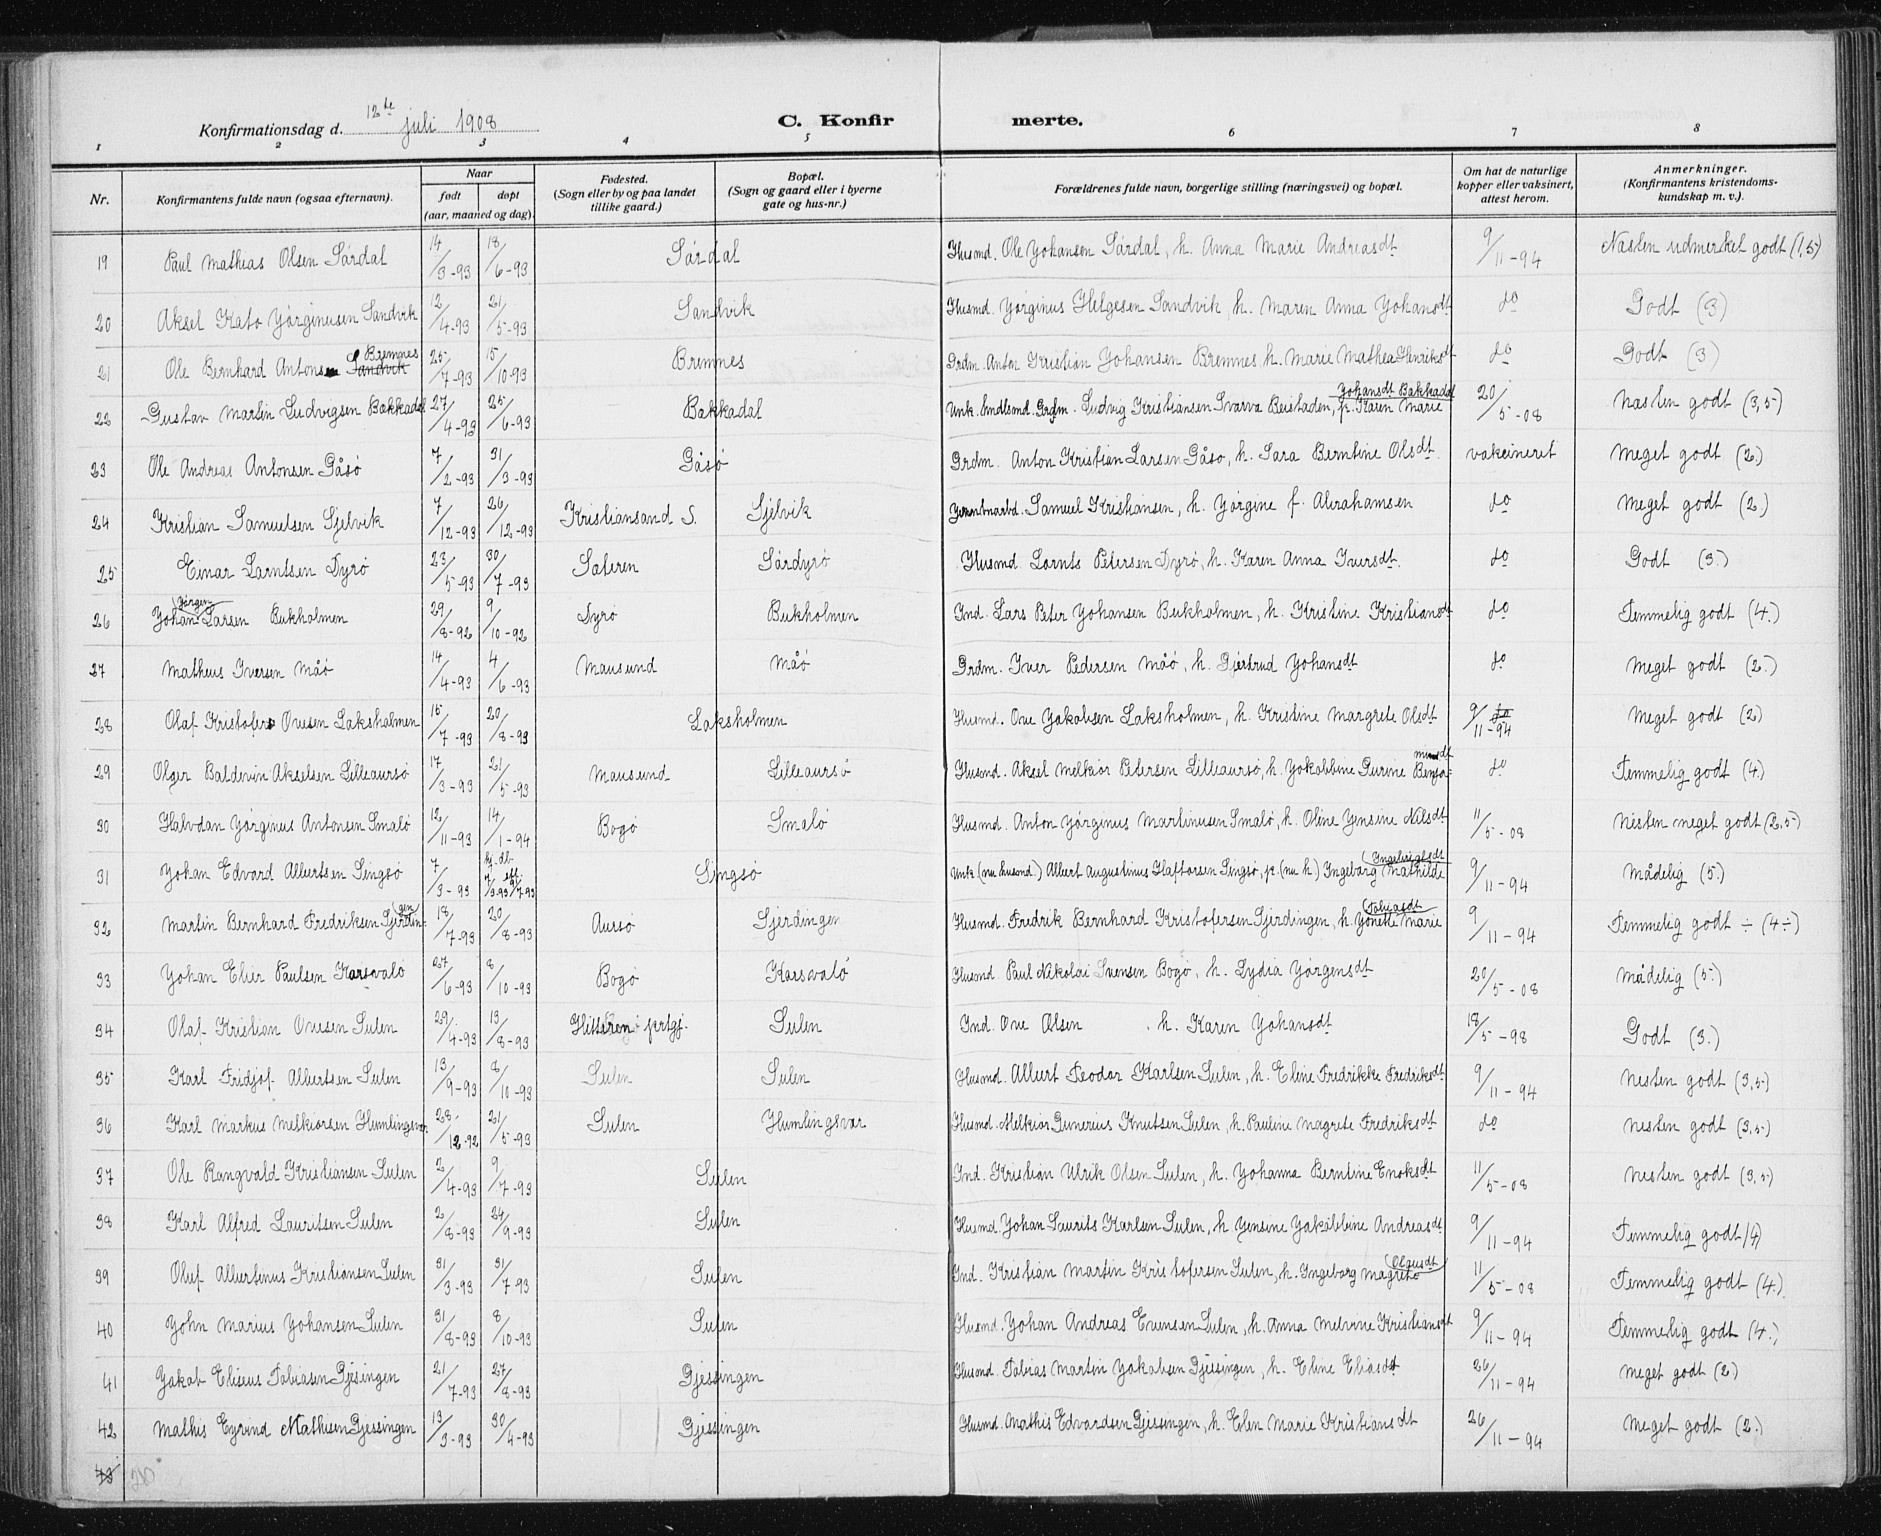 Konfirmationsdag d. 12te juli 1908 C. Konfirmerte.
1 2 3 4 5 6 7 8
Nr. Konfirmantens fulde navn (ogsaa efternavn). Naar født døpt (aar, maaned og dag). Fødested. (Sogn eller by og paa landet tillike gaard.) Bopæl. (Sogn og gaard eller i byerne gate og hus-nr.) Forældrenes fulde navn, borgerlige stilling (næringsvei) og bopæl. Om hat de naturlige kopper eller vaksinert, attest herom. Anmerkninger. (Konfirmantens kristendoms-kundskap m. v.).
19 Paul Mathias Olsen Sørdal 14/3-93 18/6-93 Sørdal Husmd. Ole Yohansen Sørdal, h. Anna Marie Andreasdt 9/11-94 Næsten udmerket godt (1,5)
20 Aksel Kato Yørginusen Sandvik 12/4-93 21/5-93 Sandvik Husmd. Yørginus Helgesen Sandvik, h. Maren Anna Yohansdt do Godt (3)
21 Ole Bernhard Antonsen Sandvik Bremnes 25/7-93 15/10-93 Bremnes Grdm. Anton Kristian Yohansen Bremnes h. Marie Mathea Henriksdt do Godt (3)
22 Gustav Martin Ludvigsen Bakkadal 27/4-93 25/6-93 Bakkadal Unk. Grdm. Ludvig Kristiansen Svarva, p. Karen Marie Yohansdt Bakkadal 20/5-08 Næsten godt (3,5)
23 Ole Andreas Antonsen Gåsø 7/2-93 31/3-93 Gåsø Grdm. Anton Kristian Larsen Gåsø, h. Sara Berntine Olsdt. vakcineret Meget godt (2)
24 Kristian Samuelsen Sjelvik 7/12-93 26/12-93 Kristiansand S. Sjelvik Samuel Kristiansen, h. Yørgine f. Abrahamsen do Meget godt (2)
25 Einar Larntsen Dyrø 23/5-93 30/7-93 Sateren Sørdyrø Husmd. Lornts Petersen Dyrø, h. Karen Anna Iversdt. do Godt (3.)
26 Yohan Yørgen Larsen Bukholmen 29/8-92 9/10-92 Dyrø Bukholmen Ind. Lars Peter Yohansen Bukholmen, h. Kristine Kristiansdt do Temmelig godt (4.)
27 Matheus Iversen Måø 14/4-93 4/6-93 Mausund Måø Grdm. Iver Pedersen Måø, h. Gjertrud Yohansdt do Meget godt (2.)
28 Olaf Kristofer Ovesen Laksholmen 15/7-93 20/8-93 Laksholmen Husmd. Ove Yakobsen Laksholmen, h. Kristine Margrete Olsdt 9/11-94 do Meget godt (2)
29 Olger Baldevin Akselsen Lilleaursø 17/3-93 21/5-93 Mausund Lilleaursø Husmd. Aksel Melkior Petersen Lilleaursø, h. Yakobbine Gurine Benjaminsdt do Temmelig godt (4)
30 Halvdan Yørginus Antonsen Smalø 12/11-93 14/1-94 Bogø Smalø Husmd. Anton Yørginus Martinusen Smalø, h. Oline Yensine Nilsdt 11/5-08 Nesten meget godt (2,5)
31 Yohan Edvard Albertsen Singsø 7/3-93 hj.db. 7/3-93 9/7-93 Singsø Unk (nu husmd.) Albert Augustinus Haftorsen Singsø, p. (nu h.) Ingeborg Mathilde Ingebrigtsdt 9/11-94 Mådelig (5.)
32 Martin Bernhard Fredriksen Sjerdingen 18/7-93 20/8-93 Aursø Sjerdingen Husmd. Fredrik Bernhard Kristofersen Sjerdingen, h. Yonette Marie Tobiasdt 9/11-94 Temmelig godt ÷ (4÷)
33 Yohan Elier Paulsen Karsvalø 27/6-93 8/10-93 Bogø Karsvalø Husmd. Paul Nikolai Svensen Bogø, h. Lydia Yørgensdt 20/5-08 Mådelig (5.)
34 Olaf Kristian Ovesen Sulen 29/4-93 13/8-93 Hitteren prtgj. Sulen Ind. Ove Olsen, h. Karen Yohansdt 18/5-98 Godt (3.)
35 Karl Fridjof Albertsen Sulen 13/9-93 8/10-93 Sulen Sulen Husmd. Albert Teodor Karlsen Sulen, h. Eline Fredrikke Fredriksdt 9/11-94 Nesten godt (3,5)
36 Karl Markus Melkiorsen Humlingsvær 28/12-92 21/5-93 Sulen Humlingsvær Husmd. Melkior Gunerius Knutsen Sulen, h. Pauline Magrete Fredriksdt do Nesten godt (3,5)
37 Ole Rangvald Kristiansen Sulen 2/4-93 9/7-93 Sulen Ind. Kristian Ulrik Olsen Sulen, h. Yohanna Berntine Enoksdt 11/5-08 Nesten godt (3,5)
38 Karl Alfred Lauritsen Sulen 2/8-93 24/9-93 Sulen Husmd. Yohan Laurits Karlsen Sulen, h. Yensine Yakobbine Andreasdt 9/11-94 Temmelig godt (4)
39 Oluf Albertinus Kristiansen Sulen 31/3-93 31/7-93 Sulen Ind. Kristian Martin Kristofersen Sulen, h. Ingeborg Magrete Olausdt 11/5-08 Temmelig godt (4.)
40 Yohn Marius Yohansen Sulen 31/8-93 8/10-93 Sulen Husmd. Yohan Andreas Evensen Sulen, h. Anna Melvine Kristiansdt 9/11-94 Temmelig godt (4.)
41 Yakob Eliseus Tobiasen Gjæsingen 21/7-93 27/8-93 Gjessingen Husmd. Tobias Martin Yakobsen Gjessingen, h. Eline Eliasdt 26/11-94 Meget godt (2)
42 Mathis Eyvind Mathisen Gjessingen 13/3-93 30/4-93 Gjessingen Husmd. Mathis Edvardsen Gjessingen, h. Elen Marie Kristiansdt 26/11-94 Meget godt (2.)
43